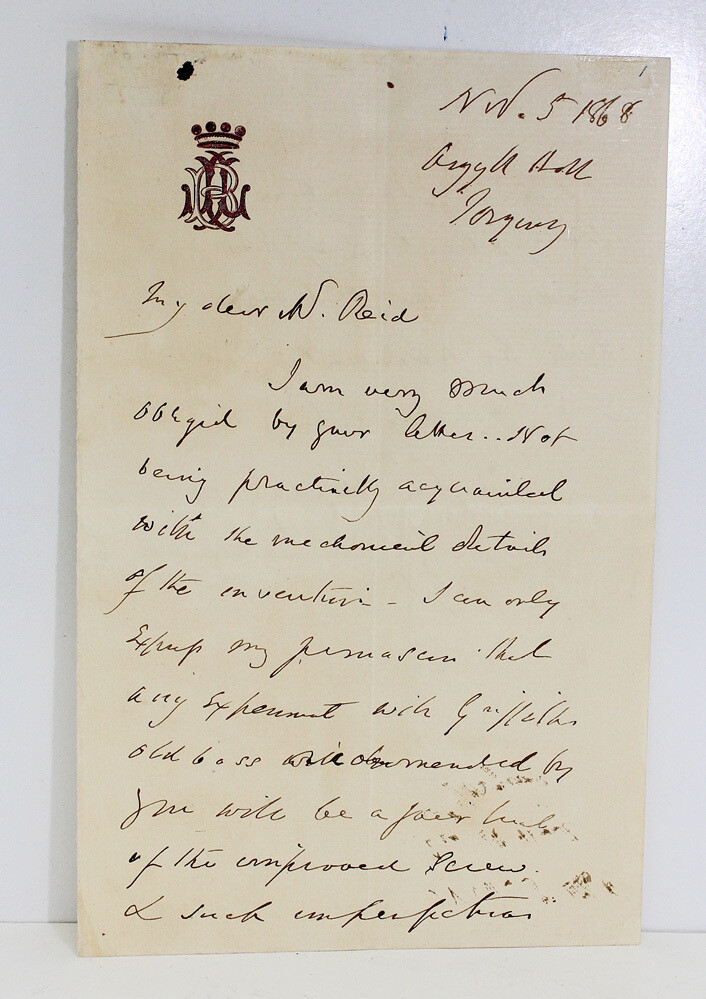 Nov. 5 1868
Argyll Hall
Torquay
My dear Mr. Reid
I am very much
obliged by your letter.. Not
being practically acquainted
with the mechanical details
of the invention - I can only
Express my permasion that
any Experiment with Griffiths
old boss recommended by
you will be a fair
of the improved Screw.
& such imperfections